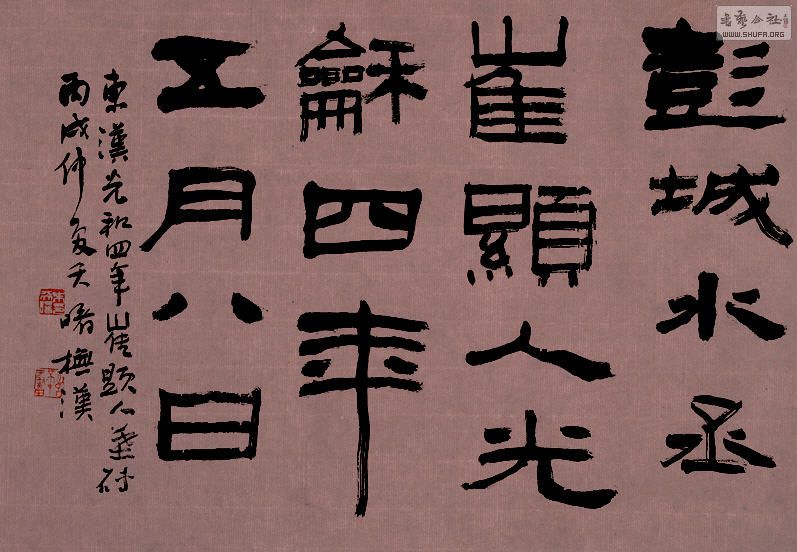 彭城水丞
崔顯人光
龢四年
五月八日
東漢光和四年崔顯人墓磚
丙戌仲夏天曙橅漢
書藝公社
WWW.SHUFA.ORG